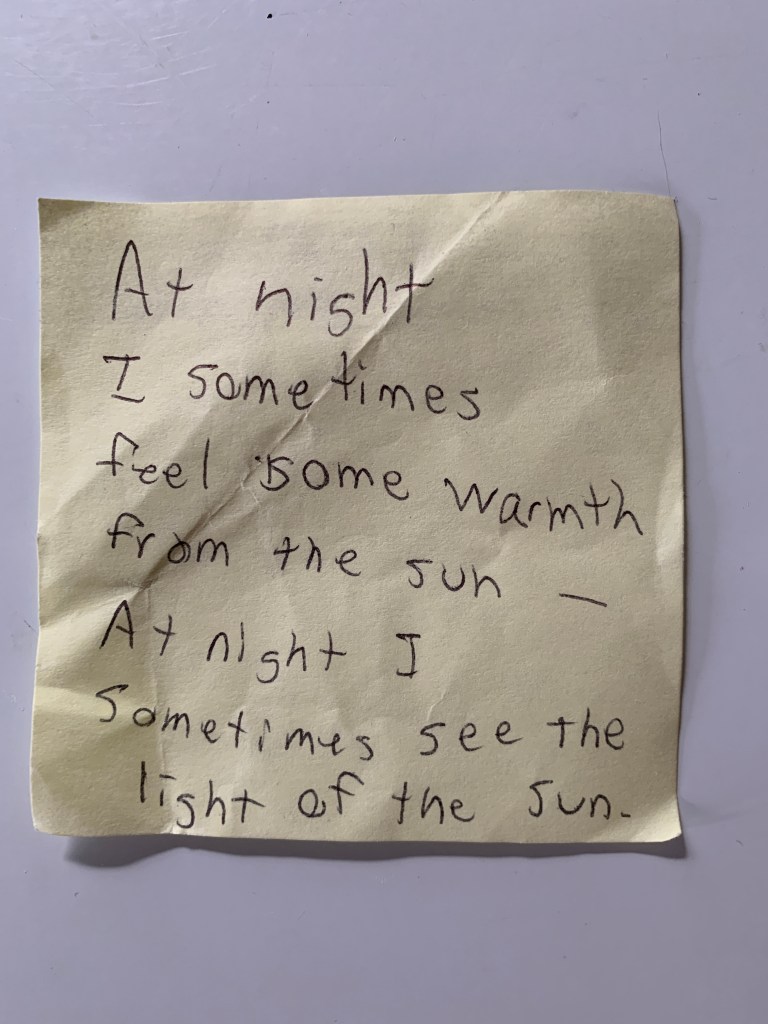 At night
I sometimes
feel some warmth
from the sun —
At night I
Sometimes see the
light of the sun.